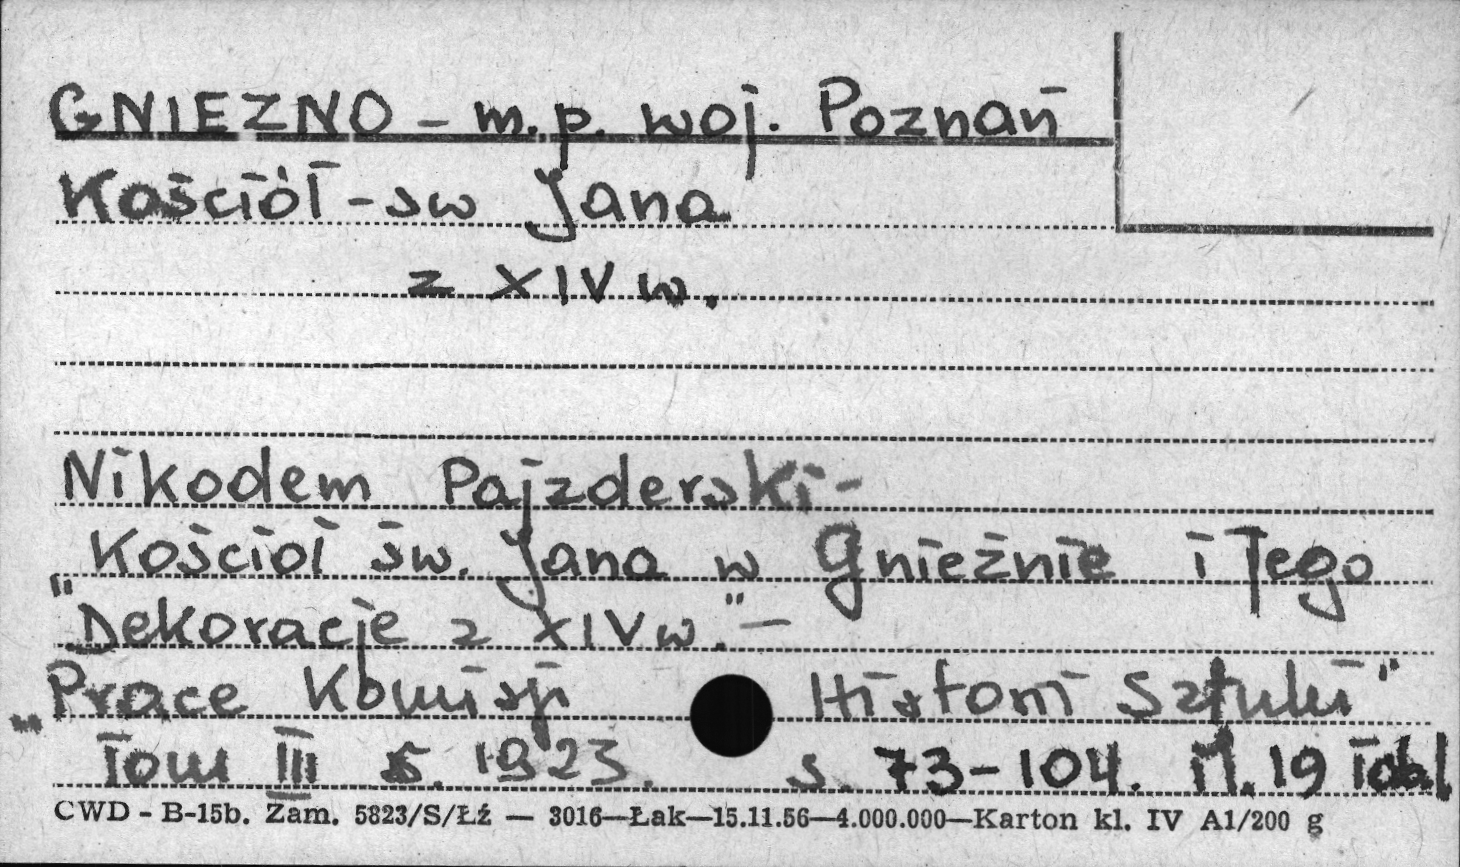 GNIEZNO - m.p. woj. Poznań
Kościół - sw Jana
z XIV w.
Nikodem Pajzderski -
"Kościół św. Jana w Gnieźnie i Jego
Dekoracje z XIVw." -
"Prace Komisji Historii Sztuki"
Tom III 1923. s. 73-104. il. 19 tabl
CWD - B-15b. Zam. 5823/S/Łź — 3016—Łak—15.11.56—4.000.000—Karton kl. IV A1/200 g